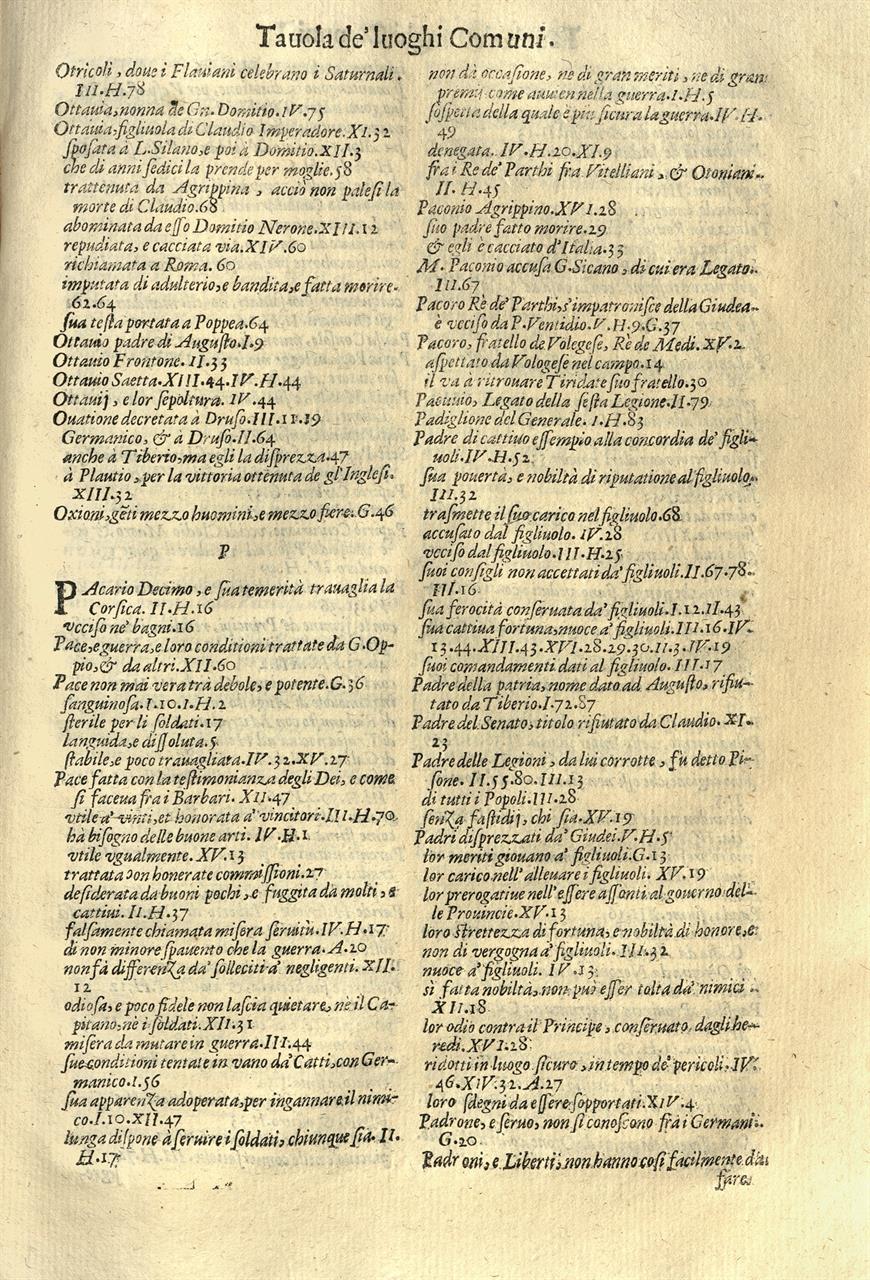 Tauola de' luoghi Comuni.
Otricoli, doue i Flauiani celebrano i Saturnali.
III.H.78
Ottauia, nonna de Gn. Domitio. IV. 75
Ottauia, figliuola di Claudio Imperadore. XI. 32
sposata à L. Silano, e poi à Domitio. XII. 3
che di anni sedici la prende per moglie. 58
trattenuta da Agrippina, acciò non palesi la
morte di Claudio. 68
abominata da esso Domitio Nerone. XIII. 12
repudiata, e cacciata via. XIV. 60
richiamata a Roma. 60
imputata di adulterio, e bandita, e fatta morire.
62.64
sua testa portata a Poppea. 64
Ottauio padre di Augusto. I. 9
Ottauio Frontone. II. 33
Ottauio Saetta. XIII. 44. IV. H. 44
Ottauij, e lor sepoltura. IV. 44
Ouatione decretata à Druso. III. 11. 19
Germanico, & à Druso. II. 64
anche à Tiberio, ma egli la disprezza. 47
à Plautio, per la vittoria ottenuta de gl'Inglesi.
XIII. 32
Oxioni, gẽti mezzo huomini, e mezzo fiere. G. 46
P
PAcario Decimo, e sua temerità trauaglia la
Corsica. II. H. 16
vcciso ne' bagni. 16
Pace, e guerra, e loro conditioni trattate da G. Op-
pio, & da altri. XII. 60
Pace non mai vera trà debole, e potente. G. 36
sanguinosa. I. 10. I. H. 2
sterile per li soldati. 17
languida, e dissoluta. 5
stabile, e poco trauagliata. IV. 32. XV. 27
Pace fatta con la testimonianza degli Dei, e come
si faceua fra i Barbari. XII. 47
vtile a' vinti, et honorata a' vincitori. III. H. 70
hà bisogno delle buone arti. IV. H. 1
vtile vgualmente. XV. 13
trattata con honerate commissioni. 27
desiderata da buoni pochi, e fuggita da molti, e
cattiui. II. H. 37
falsamente chiamata misera seruitù. IV. H. 17
di non minore spauento che la guerra. A. 20
non fà differenza da' solleciti a' negligenti. XII.
12
odiosa, e poco fidele non lascia quietare, nè il Ca-
pitano, nè i soldati. XII. 31
misera da mutare in guerra. III. 44
sue conditioni tentate in vano da' Catti, con Ger-
manico. I. 56
sua apparenza adoperata, per ingannare il nimi-
co. I. 10. XII. 47
lunga dispone à seruire i soldati, chiunque sia. II.
H. 17
non dà occasione, nè di gran meriti, nè di gran
premij come auuien nella guerra. I. H. 5
sospetta della quale è più sicura la guerra. IV. H.
49
denegata. IV. H. 20. XI. 9
fra i Re de' Parthi fra Vitelliani, & Otoniani.
II. H. 45
Paconio Agrippino. XVI. 28
suo padre fatto morire. 29
& egli è cacciato d'Italia. 33
M. Paconio accusa G. Sicano, di cui era Legato.
III. 67
Pacoro Rè de' Parthi, s'impatronisce della Giudea
è vcciso da P. Ventidio. V. H. 9. G. 37
Pacoro, fratello de Volegese, Rè de Medi. XV. 2
aspettato da Vologese nel campo. 14
il và à ritrouare Tiridate suo fratello. 30
Pacuuio, Legato della sesta Legione. II. 79
Padiglione del Generale. I. H. 83
Padre di cattiuo essempio alla concordia de' figli-
uoli. IV. H. 52
sua pouertà, e nobiltà di riputatione al figliuolo.
III. 32
trasmette il suo carico nel figliuolo. 68
accusato dal figliuolo. IV. 28
vcciso dal figliuolo. III. H. 25
suoi consigli non accettati da' figliuoli. II. 67. 78.
III. 16
sua ferocità conseruata da' figliuoli. I. 12. II. 43
sua cattiua fortuna, nuoce a' figliuoli. III. 16. IV.
13. 44. XIII. 43. XVI. 28. 29. 30. II. 3. IV. 19
suoi comandamenti dati al figliuolo. III. 17
Padre della patria, nome dato ad Augusto, rifiu-
tato da Tiberio. I. 72. 87
Padre del Senato, titolo rifiutato da Claudio. XI.
23
Padre delle Legioni, da lui corrotte, fù detto Pi-
sone. II. 55. 80. III. 13
di tutti i Popoli. III. 28
senza fastidij, chi sia. XV. 19
Padri disprezzati da' Giudei. V. H. 5
lor meriti giouano a' figliuoli. G. 13
lor carico nell'alleuare i figliuoli. XV. 19
lor prerogatiue nell'essere assonti al gouerno del-
le Prouincie. XV. 13
loro strettezza di fortuna, e nobiltà di honore, e
non di vergogna a' figliuoli. III. 32
nuoce a' figliuoli. IV. 13
sì fatta nobiltà, non può esser tolta da' nimici.
XII. 18
lor odio contra il Principe, conseruato dagli he-
redi. XVI. 28
ridotti in luogo sicuro, in tempo de' pericoli. IV.
46. XIV. 32. A. 27
loro sdegni da essere sopportati. XIV. 4
Padrone, e seruo, non si conoscono frà i Germani.
G. 20
Padroni, e Liberti, non hanno così facilmente dà
fare